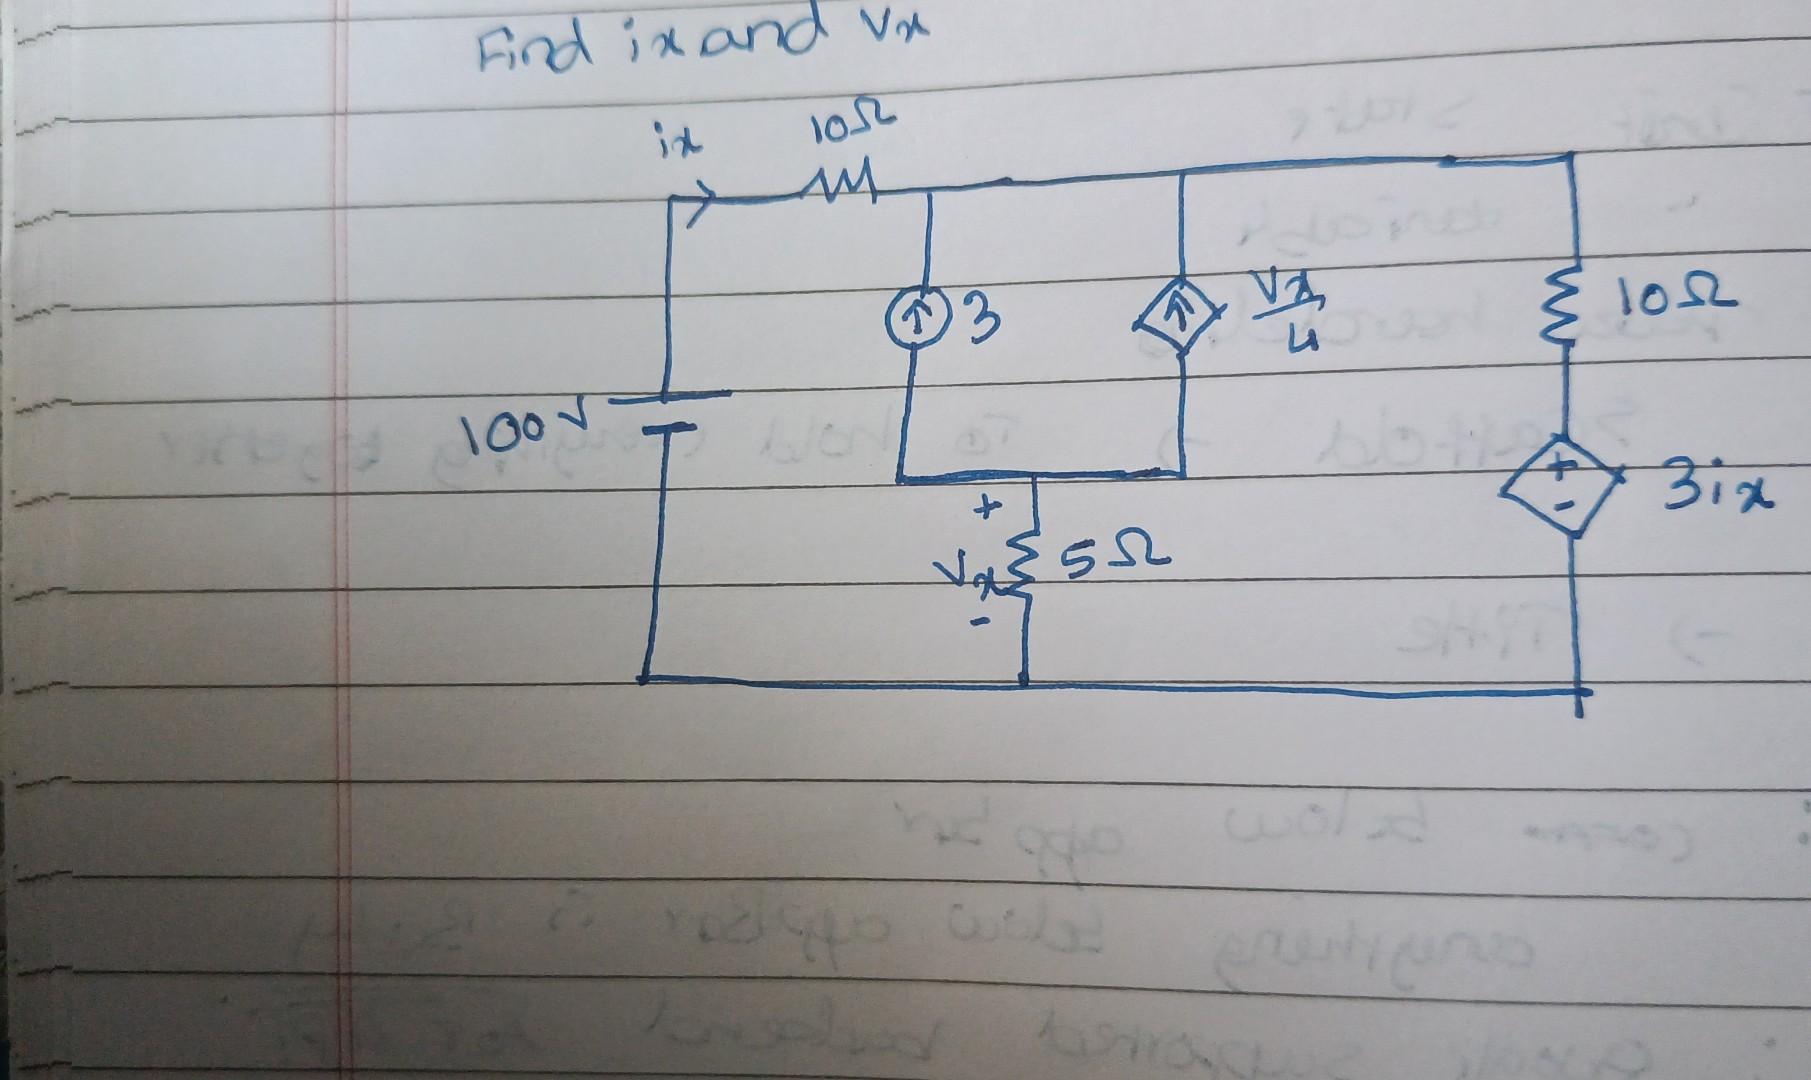 Find ix and Vx
ix
10Ω
3
Vx/4
10Ω
100V
+
+
-
3ix
Vx
5Ω
-